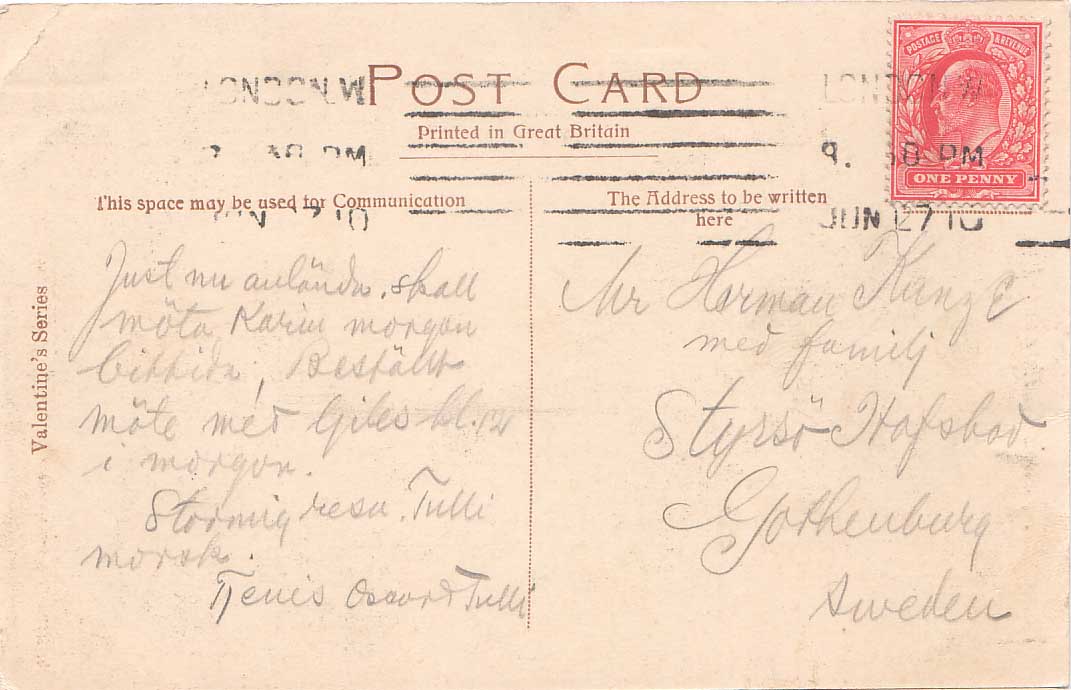 POST CARD
Printed in Great Britain
LONDON.W
PM
10
LONDON.W
9. 30 PM
JUN 27 10
POSTAGE & REVENUE
ONE PENNY
This space may be used for Communication
The Address to be written
here
Valentine's Series
Just nu anlända, skall
möta Karin morgon
bittida, Beställt
möte med Giles kl. 12
i morgon.
Stormig resa. Tulli
morsk.
Tjenis Oscar o Tulli
Mr Herman
med familj
Styrsö Hafsbad
Gothenburg
Sweden